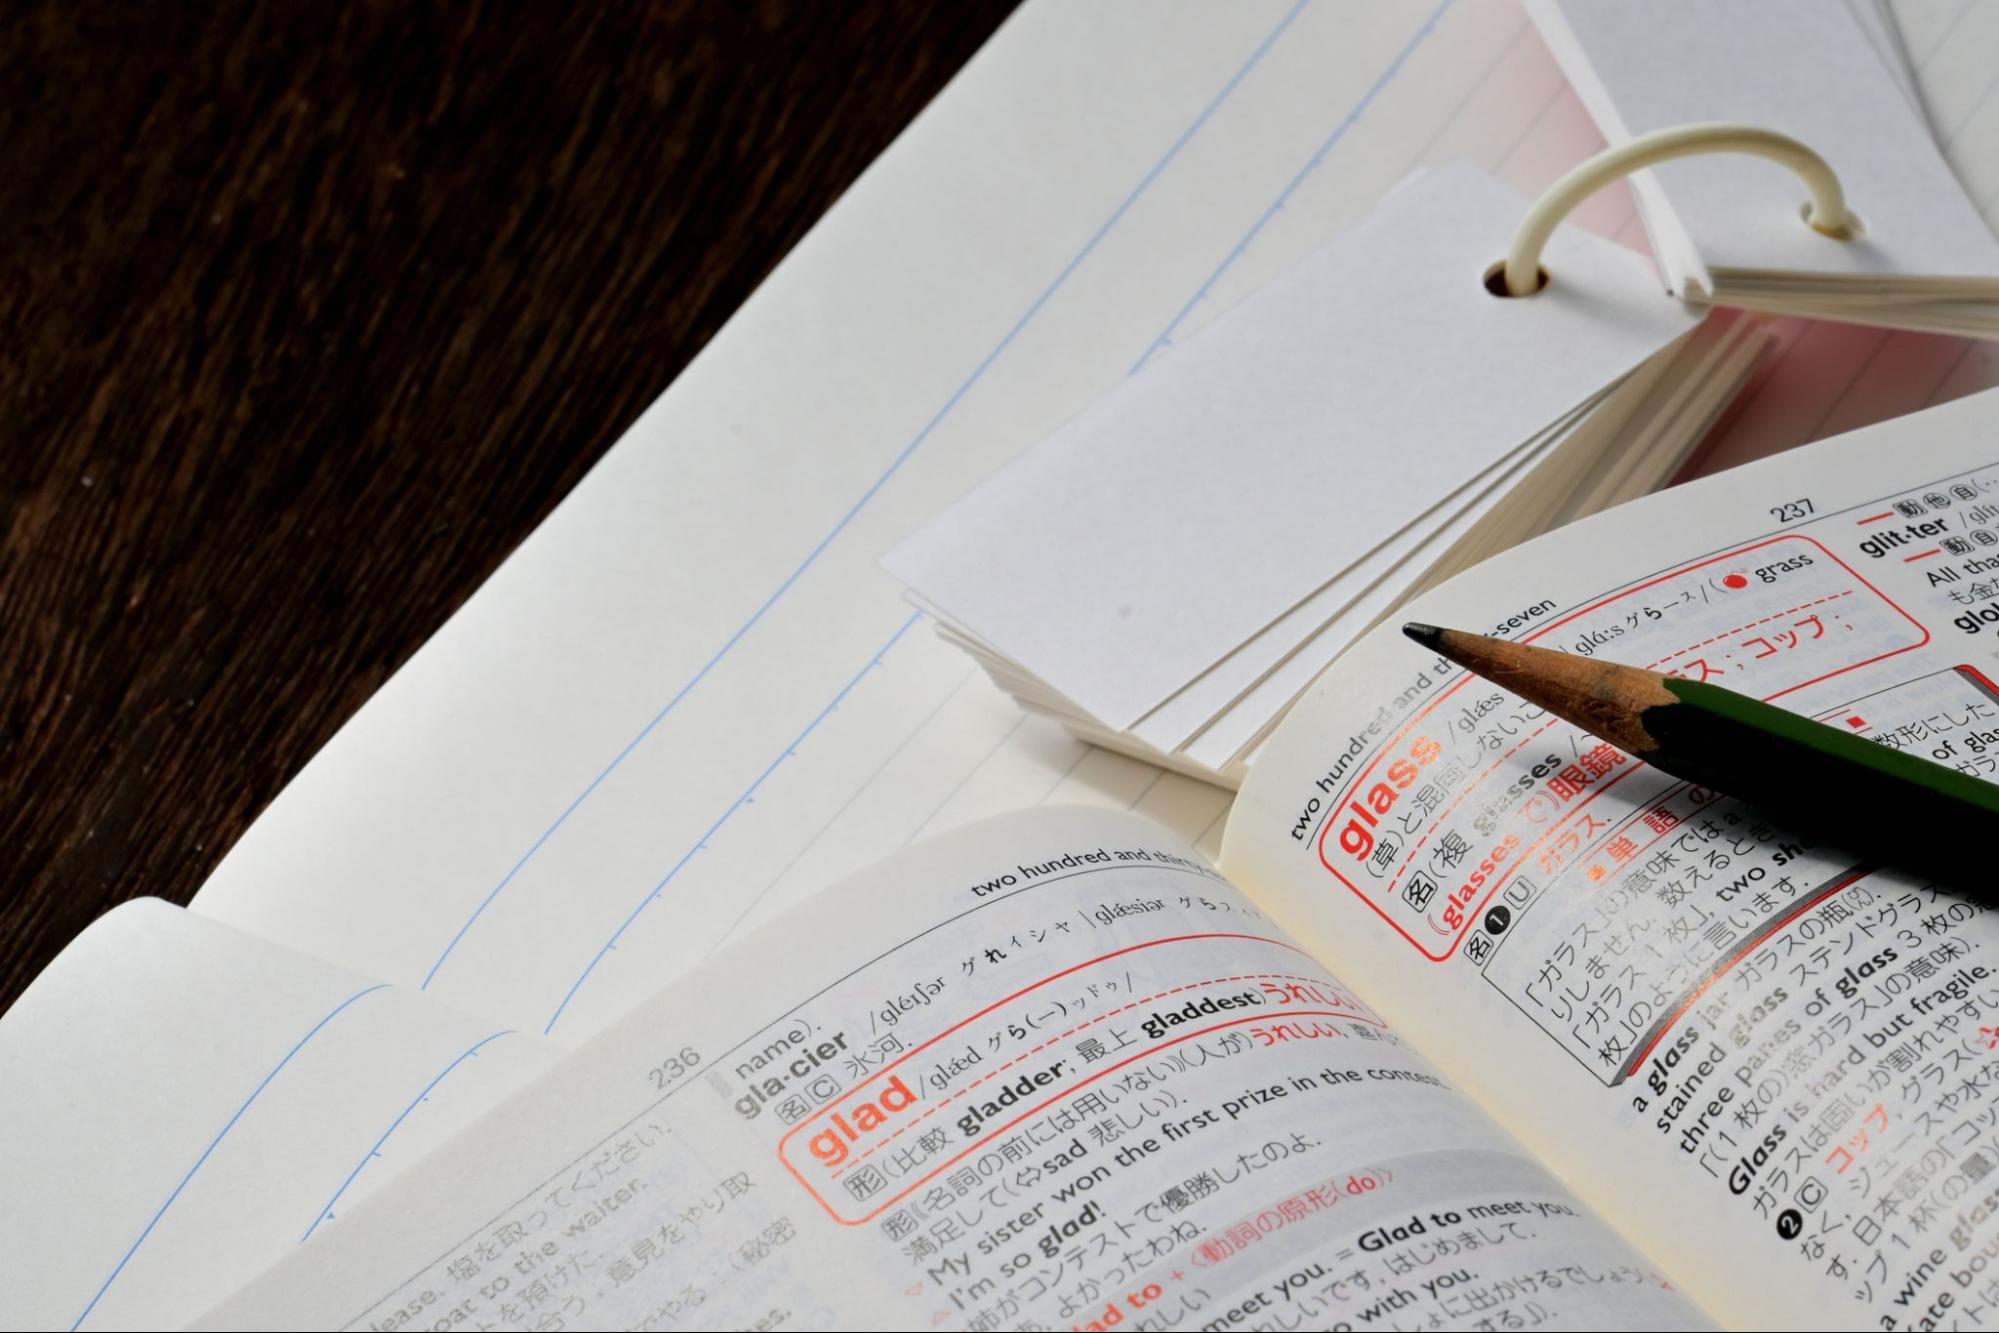 236
two hundred and
name).
gla·cier /gléɪʃər グれイシャ | glǽsiər グら
名 C 氷河.
glad /glǽd グら(ー)ッドゥ/
形 (比較 gladder; 最上 gladdest) うれしい
形 《名詞の前には用いない》(人が)うれしい,
満足して(⇔sad 悲しい).
My sister won the first prize in the contest.
I'm so glad!
姉がコンテストで優勝したのよ.
よかったわね.
to + 〈動詞の原形(do)〉
meet you. = Glad to meet you.
しいです, はじめまして.
with you.
に出かけるでしょう
する」).
塩を取ってください.
to the waiter.
を預けた.
意見をやり取
(秘密
237
two hundred and
-seven
glass /glǽs
| glɑ́ːs グらース/(
grass
(草)と混同しないこ
名 (複 glasses /
ス; コップ;
《glasses で》眼鏡
名 ❶ U ガラス.
単 語 の
数形にした
of glas
「ガラス」の意味では a
りしません. 数えるとき
「ガラス 1 枚」, two she
枚」のように言います.
a glass jar ガラスの瓶(びん).
stained glass ステンドグラス
three panes of glass 3 枚の窓
「(1 枚の)窓ガラス」の意味).
Glass is hard but fragile.
ガラスは固いが割れやすい
❷ C コップ, グラス(
なく, ジュースや水な
す. 日本語の「コッ
ップ 1 杯(の量)
a wine glass
glit·ter /glít
動 自
All tha
も金